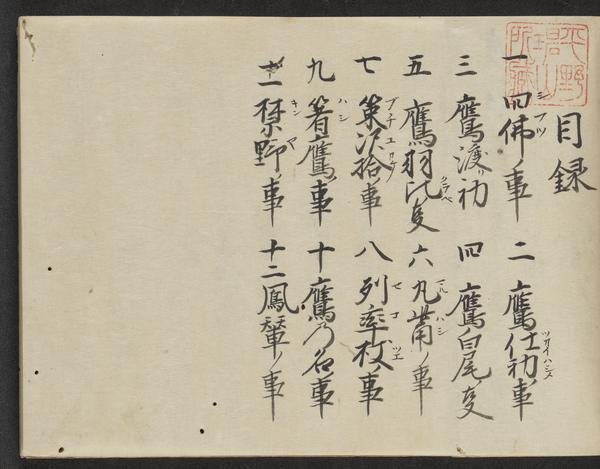 目録
一 四佛ノ事 二 鷹仕初ノ事
三 鷹渡リ初 四 鷹白尾事
五 鷹羽比事 六 丸觜ノ事
七 策次拾ノ事 八 列卒杖ノ事
九 箸鷹ノ事 十 鷹乃名事
十一 禁野ノ事 十二 鳳輦ノ事